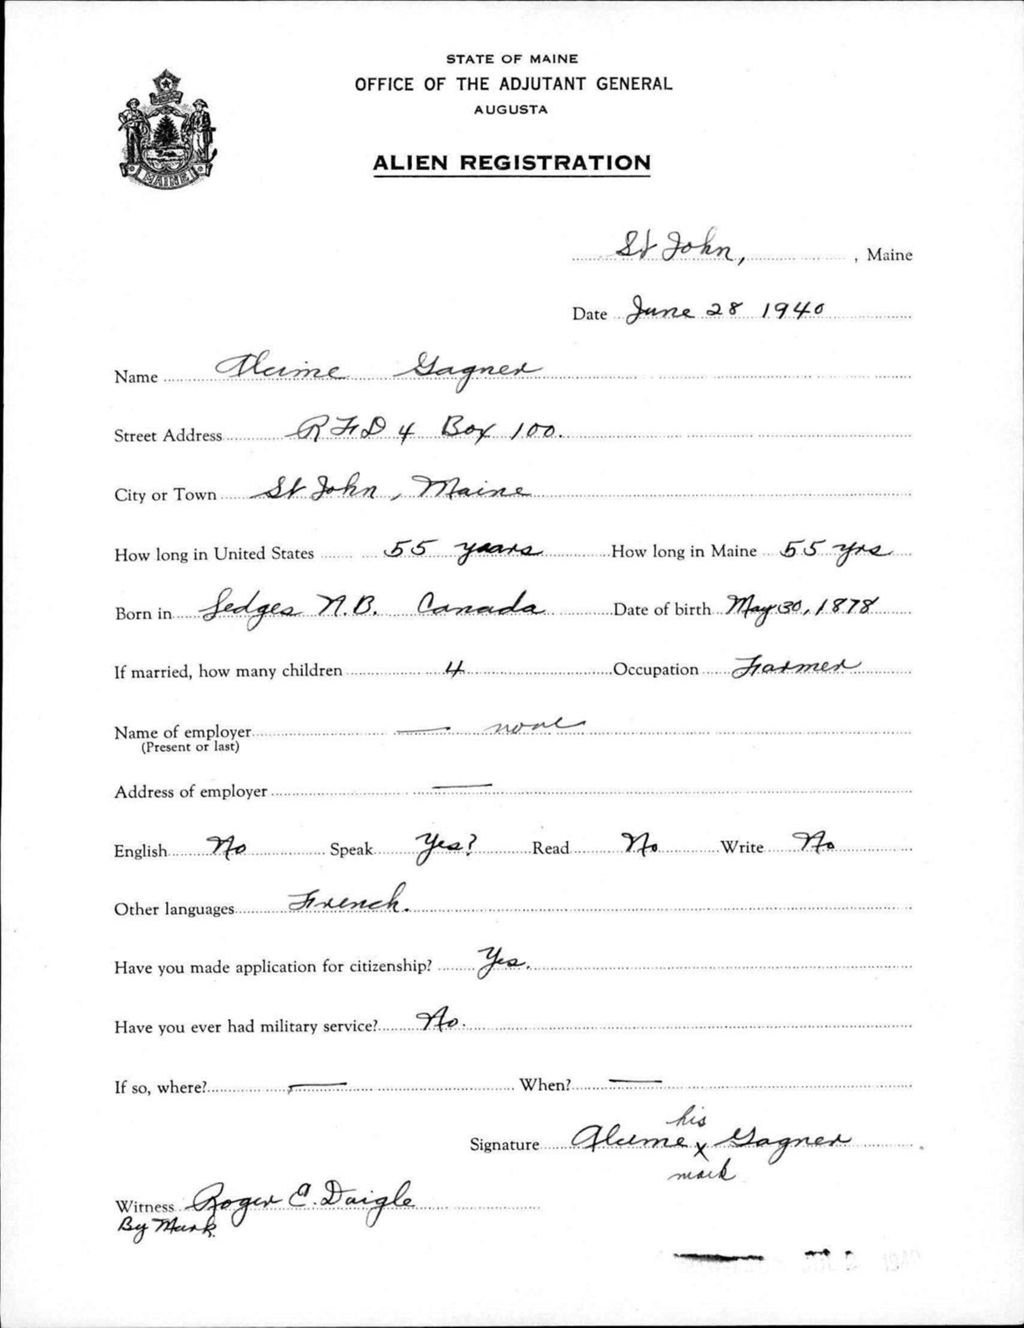 STATE OF MAINE
OFFICE OF THE ADJUTANT GENERAL
AUGUSTA
MAINE
ALIEN REGISTRATION
St John, , Maine
Date June 28 1940
Name Alcime Gagner
Street Address R F D 4 Box 100.
City or Town St John, Maine
How long in United States 55 years How long in Maine 55 yrs
Born in Ledges N.B. Canada Date of birth May 30, 1878
If married, how many children 4 Occupation Farmer
Name of employer — none
(Present or last)
Address of employer —
English No Speak Yes? Read No Write No
Other languages French.
Have you made application for citizenship? Yes.
Have you ever had military service? No.
If so, where? — When? —
his
Signature Alcime x Gagner
mark
Witness Roger E. Daigle
By Mark